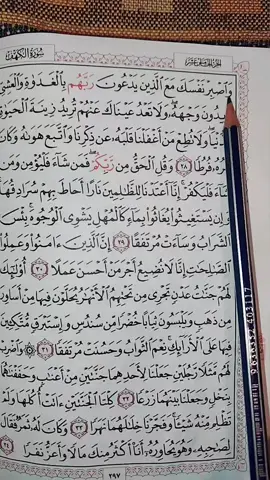 سورة الكهف الجزء الخامس عشر
وَٱصۡبِرۡ نَفۡسَكَ مَعَ ٱلَّذِينَ يَدۡعُونَ رَبَّهُم بِٱلۡغَدَوٰةِ وَٱلۡعَشِيِّ
يدُونَ وَجۡهَهُۥۖ وَلَا تَعۡدُ عَيۡنَاكَ عَنۡهُمۡ تُرِيدُ زِينَةَ ٱلۡحَيَوٰةِ
دُّنۡيَاۖ وَلَا تُطِعۡ مَنۡ أَغۡفَلۡنَا قَلۡبَهُۥ عَن ذِكۡرِنَا وَٱتَّبَعَ هَوَىٰهُ وَكَانَ
مۡرُهُۥ فُرُطٗا ٢٨ وَقُلِ ٱلۡحَقُّ مِن رَّبِّكُمۡۖ فَمَن شَآءَ فَلۡيُؤۡمِن وَمَن
شَآءَ فَلۡيَكۡفُرۡۚ إِنَّآ أَعۡتَدۡنَا لِلظَّٰلِمِينَ نَارًا أَحَاطَ بِهِمۡ سُرَادِقُهَاۚ
وَإِن يَسۡتَغِيثُواْ يُغَاثُواْ بِمَآءٖ كَٱلۡمُهۡلِ يَشۡوِي ٱلۡوُجُوهَۚ بِئۡسَ
ٱلشَّرَابُ وَسَآءَتۡ مُرۡتَفَقًا ٢٩ إِنَّ ٱلَّذِينَ ءَامَنُواْ وَعَمِلُواْ
ٱلصَّٰلِحَٰتِ إِنَّا لَا نُضِيعُ أَجۡرَ مَنۡ أَحۡسَنَ عَمَلًا ٣٠ أُوْلَٰٓئِكَ
لَهُمۡ جَنَّٰتُ عَدۡنٖ تَجۡرِي مِن تَحۡتِهِمُ ٱلۡأَنۡهَٰرُ يُحَلَّوۡنَ فِيهَا مِنۡ أَسَاوِرَ
مِن ذَهَبٖ وَيَلۡبَسُونَ ثِيَابًا خُضۡرٗا مِّن سُندُسٖ وَإِسۡتَبۡرَقٖ مُّتَّكِـِٔينَ
فِيهَا عَلَى ٱلۡأَرَآئِكِۚ نِعۡمَ ٱلثَّوَابُ وَحَسُنَتۡ مُرۡتَفَقٗا ٣١ ۞ وَٱضۡرِبۡ
لَهُم مَّثَلٗا رَّجُلَيۡنِ جَعَلۡنَا لِأَحَدِهِمَا جَنَّتَيۡنِ مِنۡ أَعۡنَٰبٖ وَحَفَفۡنَٰهُمَا
بِنَخۡلٖ وَجَعَلۡنَا بَيۡنَهُمَا زَرۡعٗا ٣٢ كِلۡتَا ٱلۡجَنَّتَيۡنِ ءَاتَتۡ أُكُلَهَا وَلَمۡ
تَظۡلِم مِّنۡهُ شَيۡـٔٗاۚ وَفَجَّرۡنَا خِلَٰلَهُمَا نَهَرٗا ٣٣ وَكَانَ لَهُۥ ثَمَرٞ فَقَالَ
لِصَٰحِبِهِۦ وَهُوَ يُحَاوِرُهُۥٓ أَنَا۠ أَكۡثَرُ مِنكَ مَالٗا وَأَعَزُّ نَفَرٗا ٣٤
٢٩٧